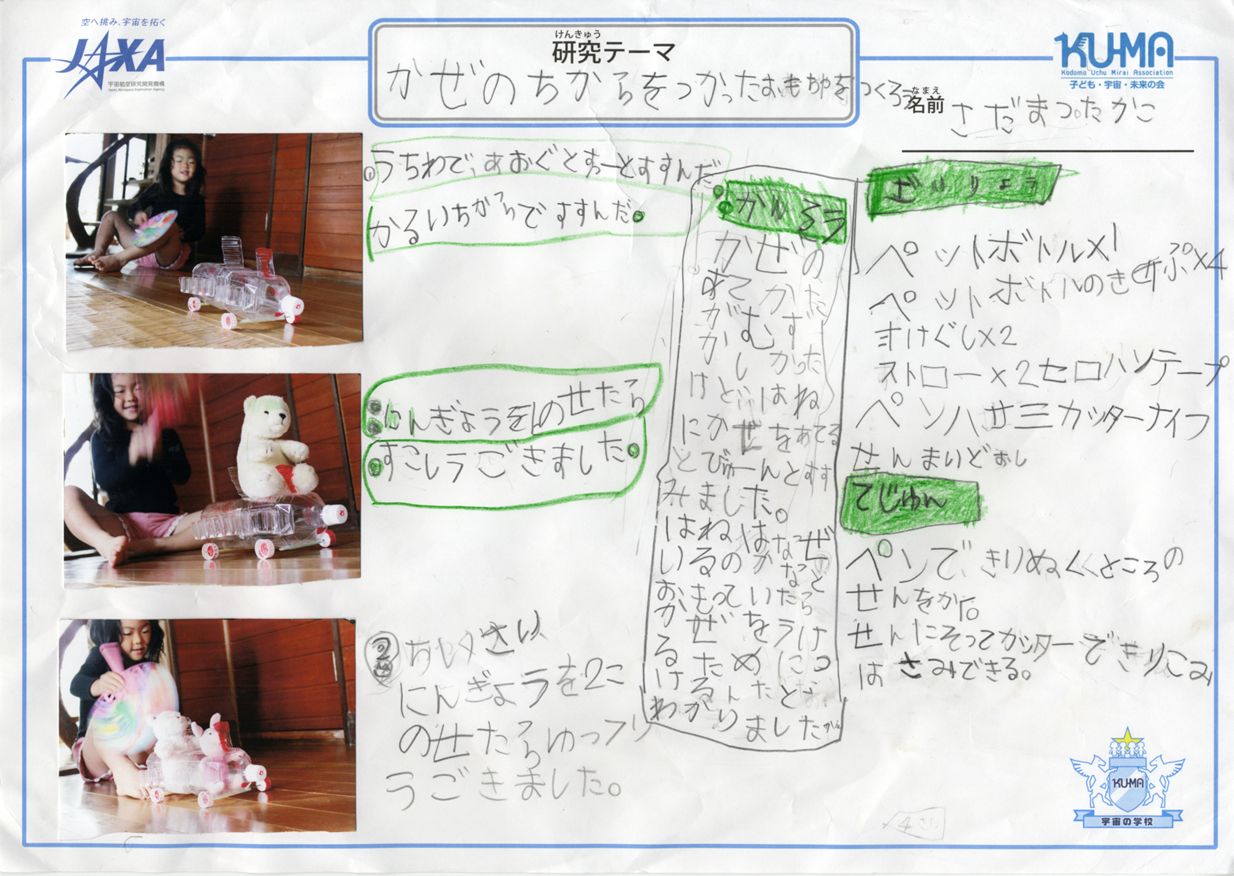 空へ挑み、宇宙を拓く
JAXA
宇宙航空研究開発機構
Japan Aerospace Exploration Agency
けんきゅう
研究テーマ
かぜのちからをつかったおもちゃをつくろう
KU-MA
Kodomo Uchu Mirai Association
子ども・宇宙・未来の会
なまえ
名前
さだまつたかこ
うちわで、あおぐとすーとすすんだ
かるいちからですすんだ
にんぎょうをのせたら
すこしうごきました
② 
にんぎょうを2こ
のせたらゆっくり
うごきました。
かぜの
がむず
かしかった
けどはね
にかぜをあてる
とびゅーんとすす
みました。
はねはなぜ
いるのかなと
おもっていたら
かぜをうけ
るためにつ
けるんだと
わかりましたから
ざいりょう
ペットボトル×1
ペットボトルのきゃっぷ×4
すけぐし×2
ストロー×2セロハンテープ
ペンハサミカッターナイフ
せんまいどおし
てじゅん
ペンで、きりぬくところの
せんをかく。
せんにそってカッターできりこみ
はさみできる。
KUMA
宇宙の学校